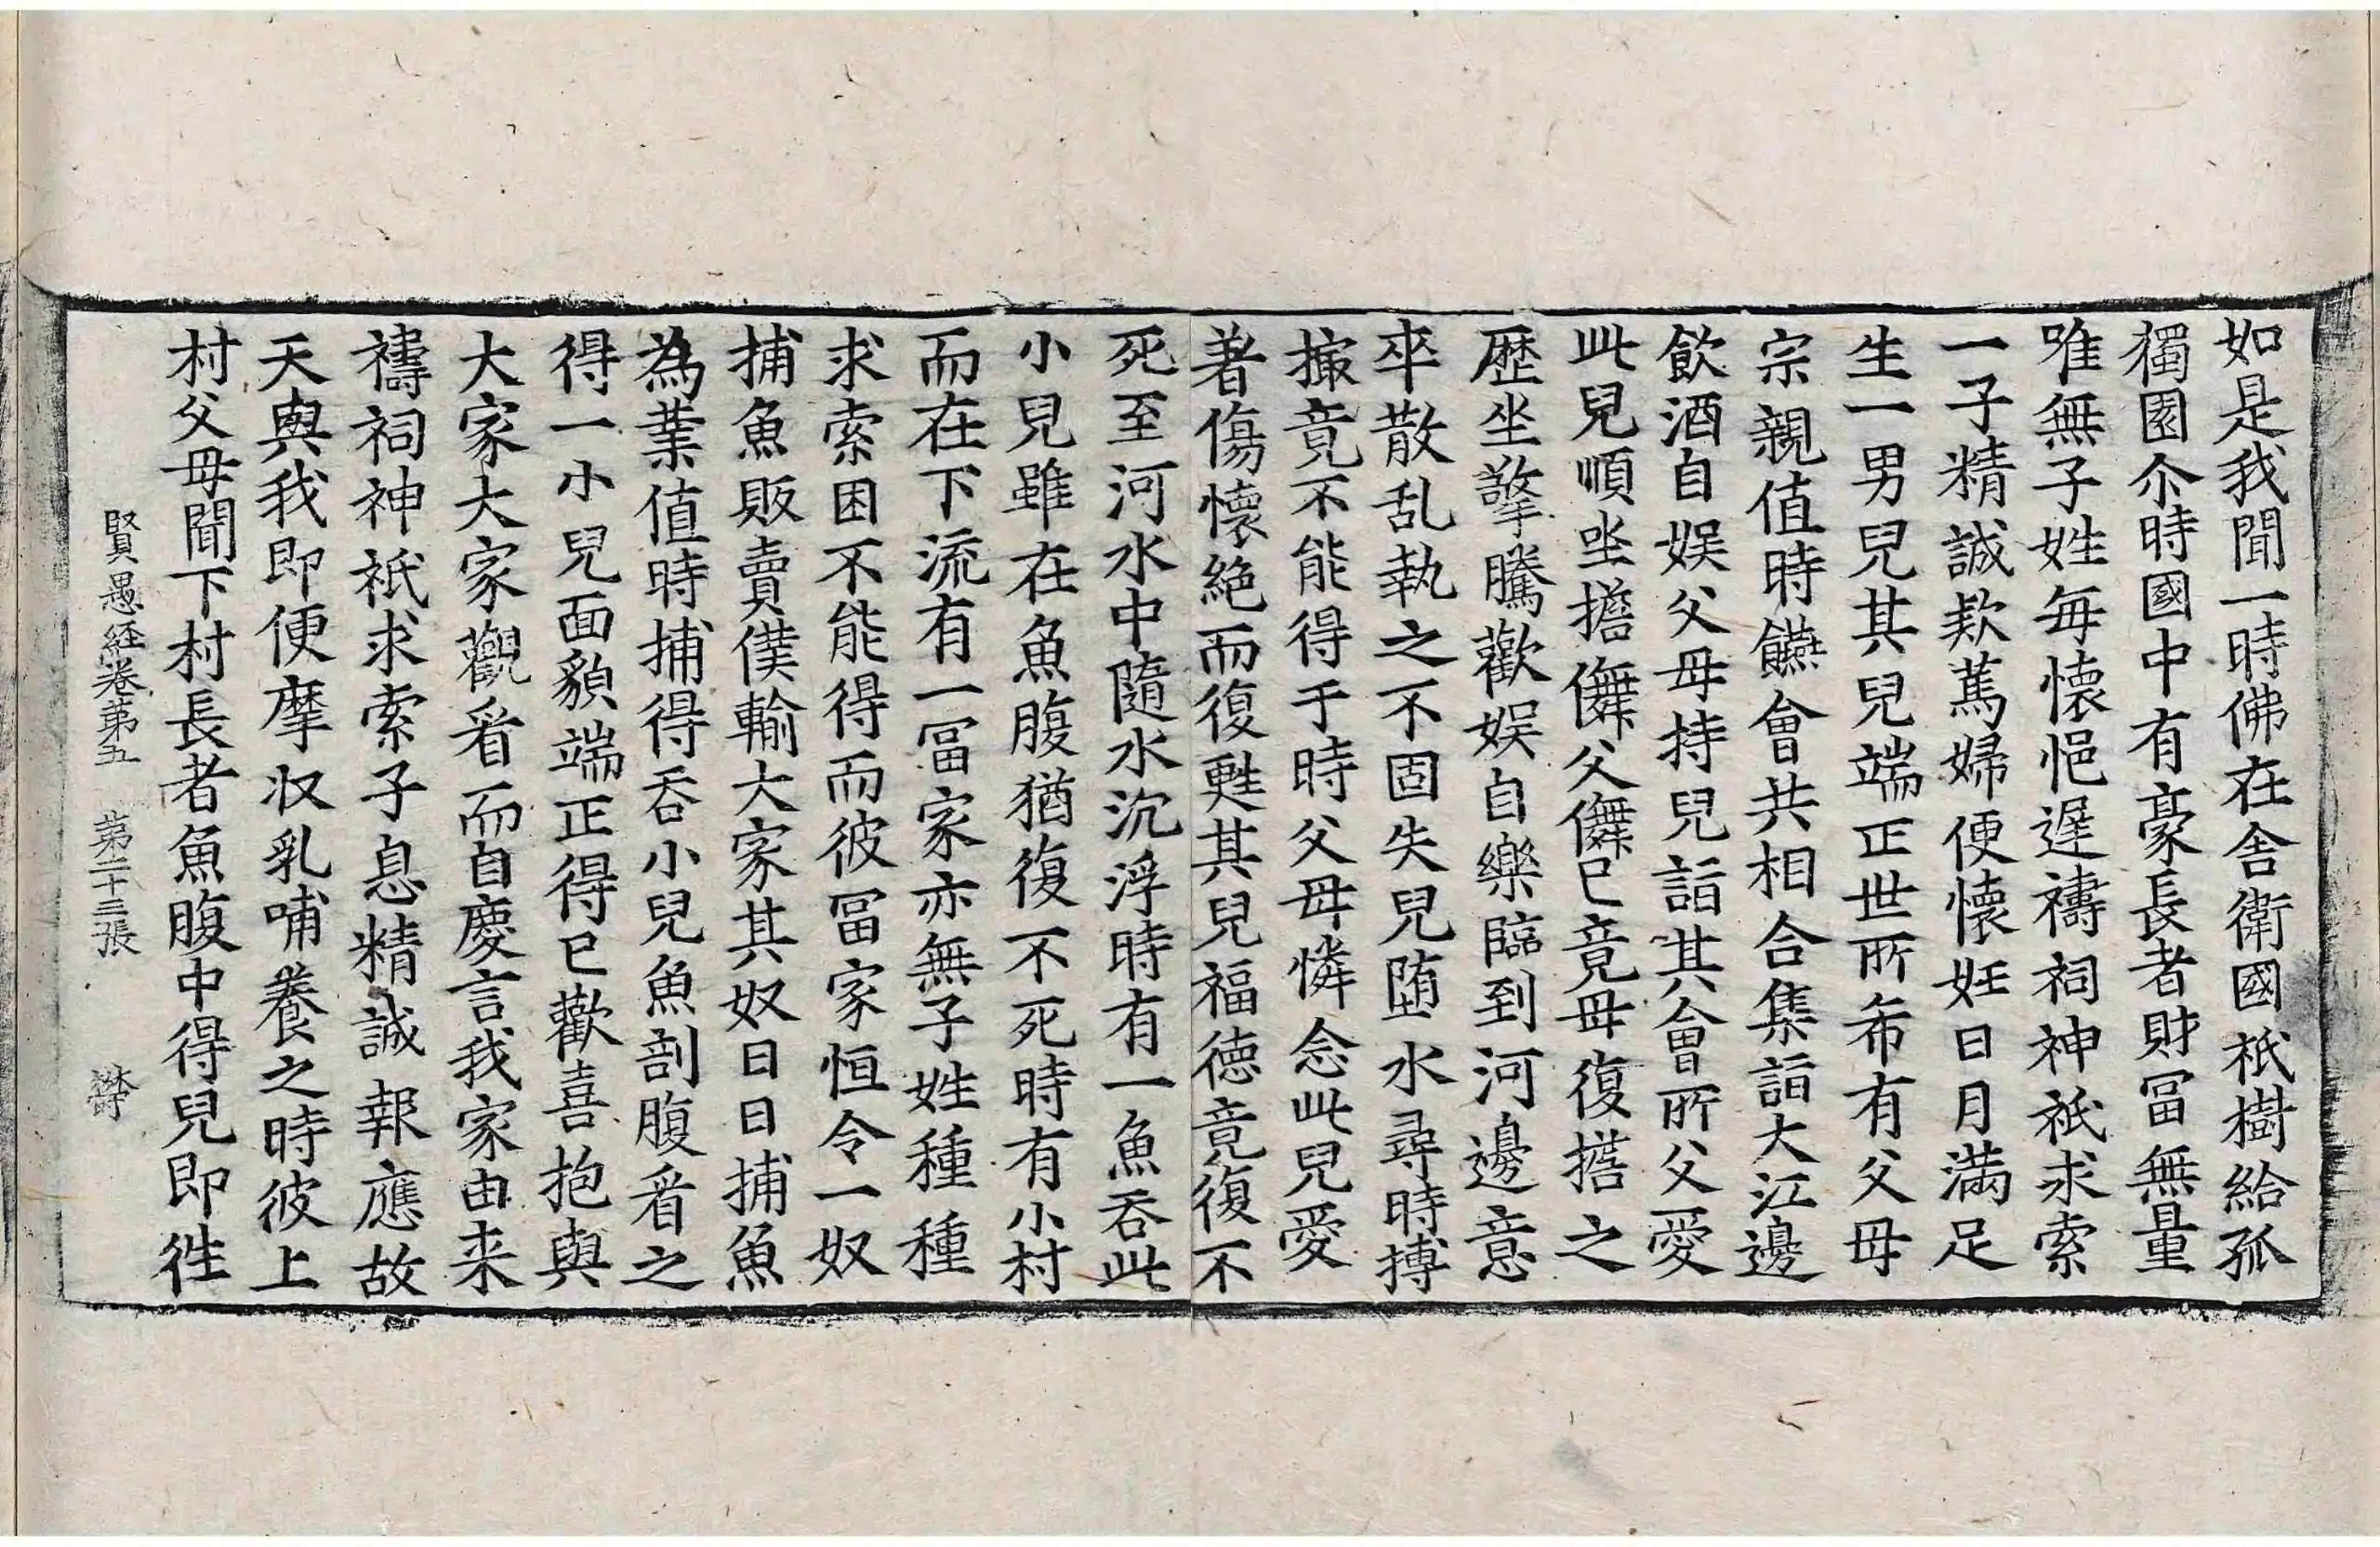 如是我聞一時佛在舎衛國祇樹給孤
獨園尒時國中有豪長者財冨無量
唯無子姓每懷悒遲禱祠神祇求索
一子精誠款篤婦便懷妊日月滿足
生一男兒其兒端正世所希有父母
宗親值時讌會共相合集詣大江邊
飲酒自娱父母持兒詣其會所父愛
此兒順坐擔儛父儛已竟母復擔之
歷坐擎騰歡娱自樂臨到河邊意
卒散乱執之不固失兒堕水尋時搏
撮竟不能得于時父母憐念此兒愛
著傷懷絶而復甦其兒福德竟復不
死至河水中隨水沉浮時有一魚吞此
小兒雖在魚腹猶復不死時有小村
而在下流有一冨家亦無子姓種種
求索困不能得而彼冨家恒令一奴
捕魚販賣僕輸大家其奴日日捕魚
為業值時捕得吞小兒魚剖腹看之
得一小兒面貌端正得已歡喜抱與
大家大家觀看而自慶言我家由来
禱祠神祇求索子息精誠報應故
天與我即便摩収乳哺養之時彼上
村父母聞下村長者魚腹中得兒即徃
賢愚経卷第五 第二十三張